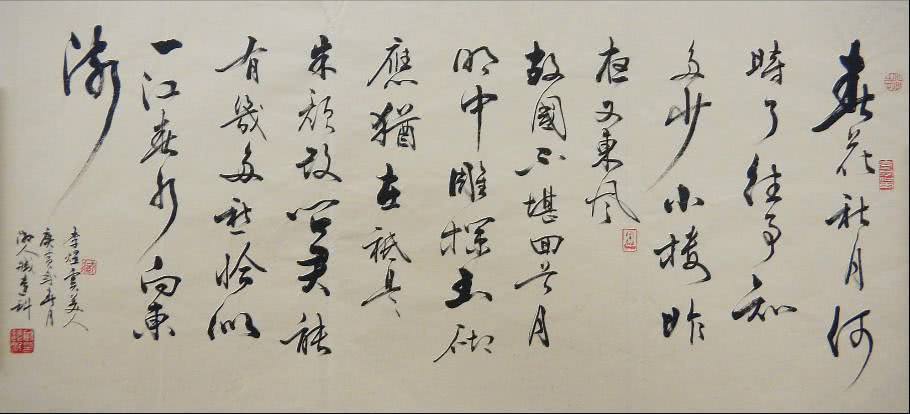 春花秋月何
時了往事知
多少小樓昨
夜又東風
故國不堪回首月
明中雕欄玉砌
應猶在祗是
朱顏改問君能
有幾多愁恰似
一江春水向東
流
李煜虞美人
庚寅年月